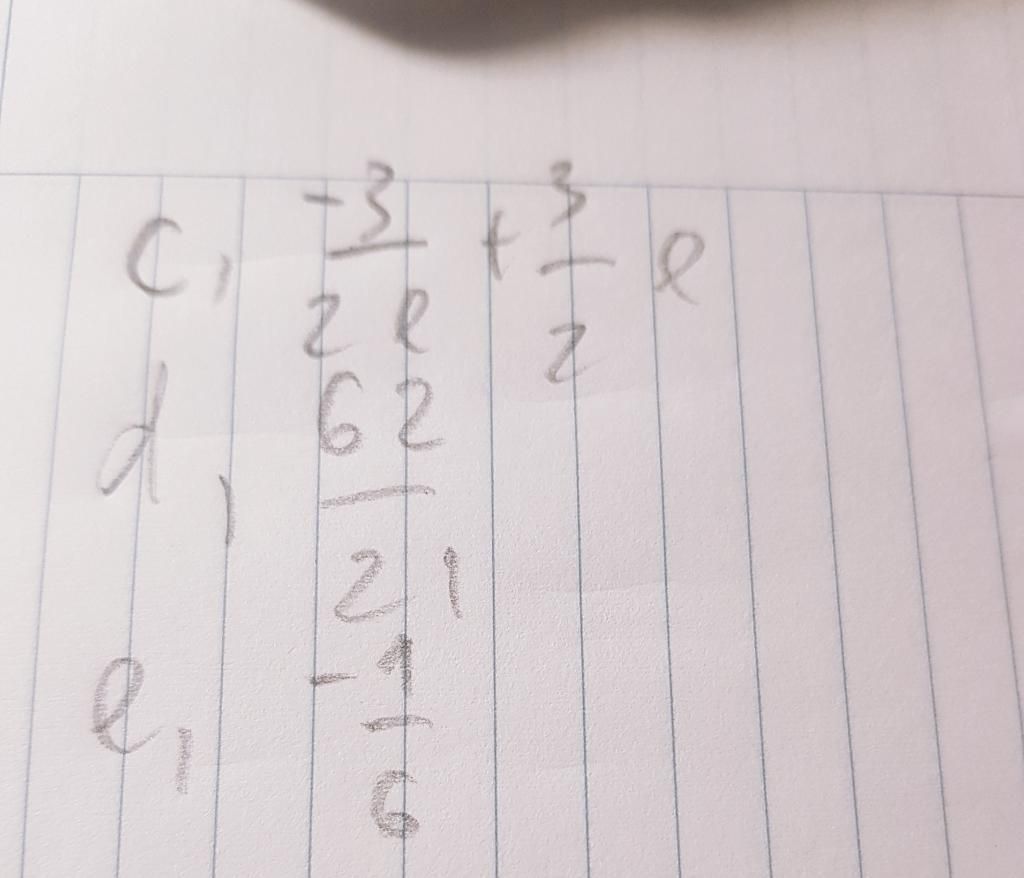 c, -3/2e + 3/2 e
d, 62/21
e, -1/6